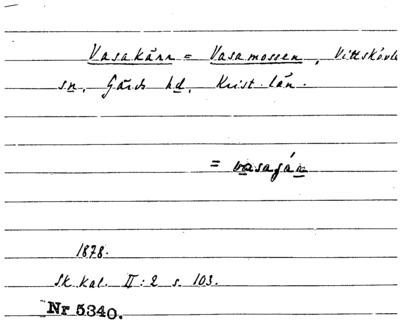 Vasakärr = Vasamossen, Vittskövle
sn, Gärds hd, Krist. län.
= vasaɡár
1878.
Sk. kal. II:2 s. 103.
Nr 5340.